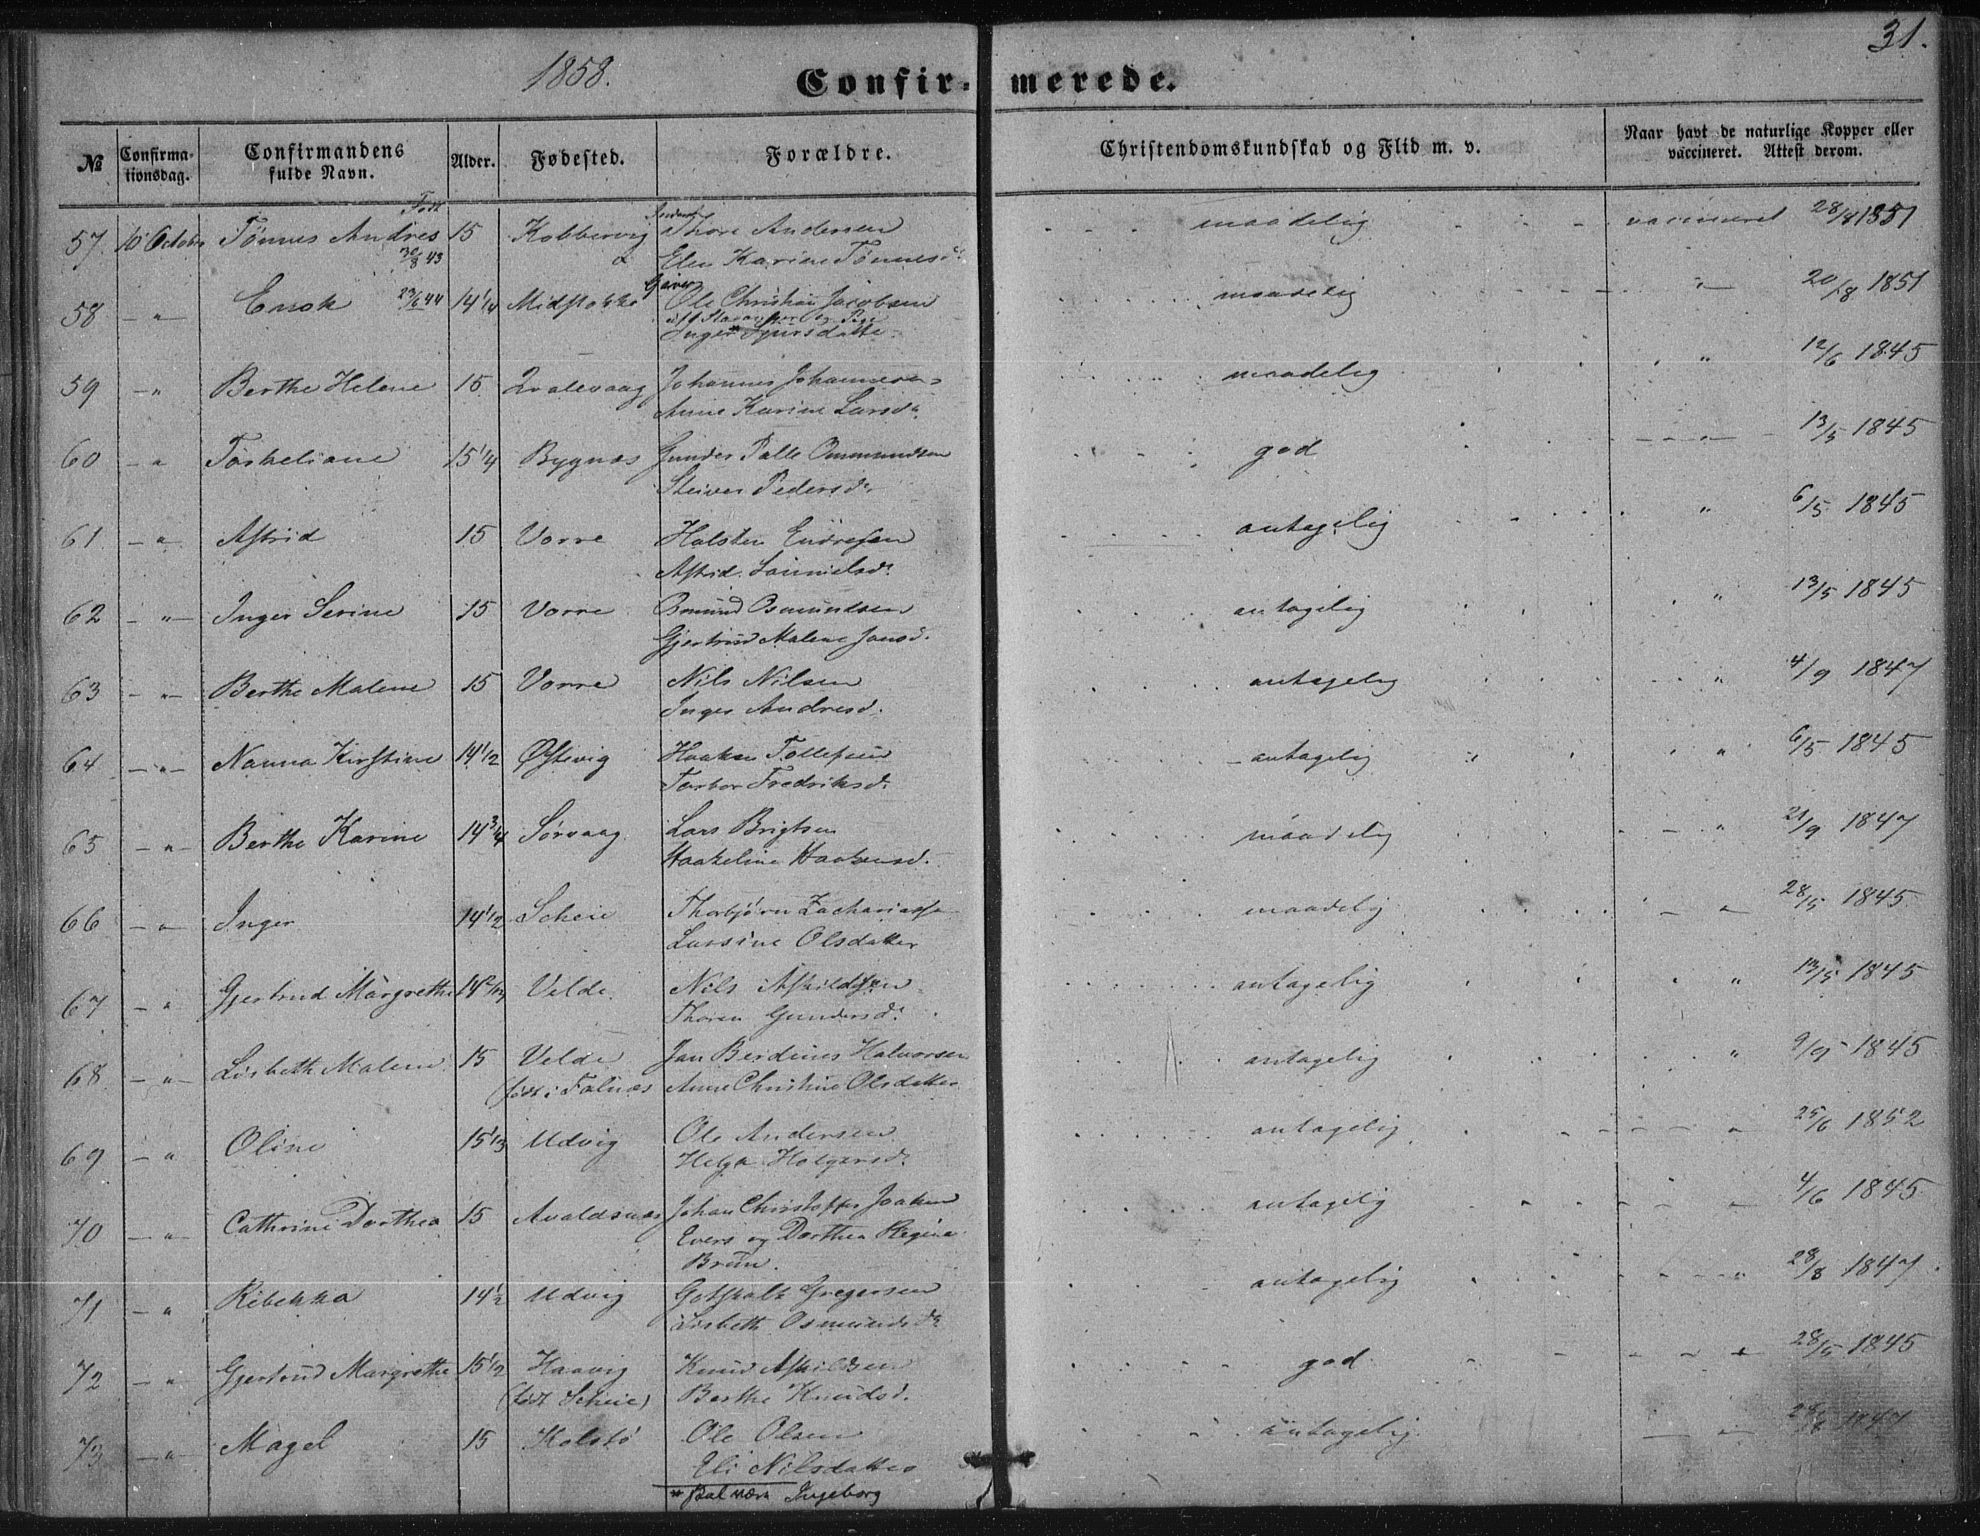 31.
1858.
Confir- merede.
№ Confirma-tionsdag. Confirmandens fulde Navn. Alder. Fødested. Forældre. Christendomskundskab og Flid m. v. Naar havt de naturlige Kopper eller vaccineret. Attest derom.
Født
57 10 October Tønnes Andres 15 Kobbervig Thore Andersen maadelig vaccineret 28/8 1851
30/8 43 Elen Karine Tønnesd.
58 — " — Enok 23/6 44 14 1/4 Midstokke Ole Christian Jacobsen maadelig " 20/8 1851
Inger *
59 — " Berthe Helene 15 Qvalevaag Johannes Johannesen maadelig " 12/6 1845
Anne Karine Larsd.
60 — " Torkeliane 15 1/4 Bygnæs Gunder Palle Ommundsen god " 13/5 1845
Pedersd.
61 — " — Astrid 15 Vorre Halsten Endresen antagelig " 6/5 1845
Astrid
62 — " — Inger Serine 15 Vorre Osmundsen antagelig " 13/5 1845
Gjertrud Malene Jansd.
63 — " — Berthe Malene 15 Vorre Nils Nilsen antagelig " 4/9 1847
Inger Andresd.
64 — " — Nanna Kirstine 14 1/2 Østevig Haaken Tollefsen antagelig " 6/5 1845
Torbor Fredriksd.
65 — " — Berthe Karine 14 3/4 Sørvaag Lars Brigtsen maadelig " 21/9 1847
Haakeline Haakensd.
66 — " — Inger 14 1/2 Scheie Thorbjørn Zachariassen maadelig " 28/5 1845
Larsine Olsdatter
67 — " Gjertrud Margrethe Velde Nils Askildsen antagelig " 13/5 1845
Thoren Gundersd.
68 — " — Lisbeth Malene 15 Velde Jan Berdines Halvorsen antagelig " 1845
(født i Falnæs Anne Christine Olsdatter
69 — " Oline 15 1/3 Udvig Ole Andersen antagelig " 25/6 1852
Helga Holgersd.
70 — " — Cathrine Dorthea 15 Avaldsnæs Johan Christoffer Joakim antagelig " 4/6 1845
Evers og Dorthea Regine
Brun.
71 — " Ribekka 14 1/2 Udvig Gotskalk Gregersen antagelig " 28/8 1847
Lisbeth Osmundsd.
72 — " Gjertrud Margrethe 15 1/2 Haavig Knud Askildsen god " 28/5 1845
(født Scheie) Berthe Knudsd.
73 — " Magel 15 Kolstø Ole Olsen antagelig " 1847
Eli Nilsdatter
* skal være Ingeborg